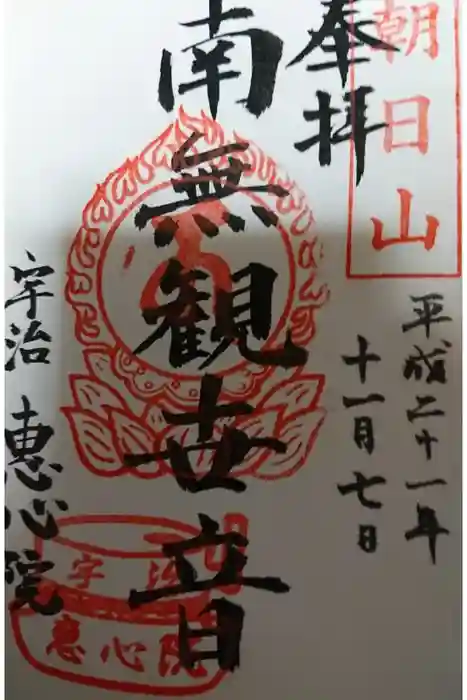 朝日山
奉拝
平成二十一年
十一月七日
南無観世音
宇治 恵心院
宇治
恵心院